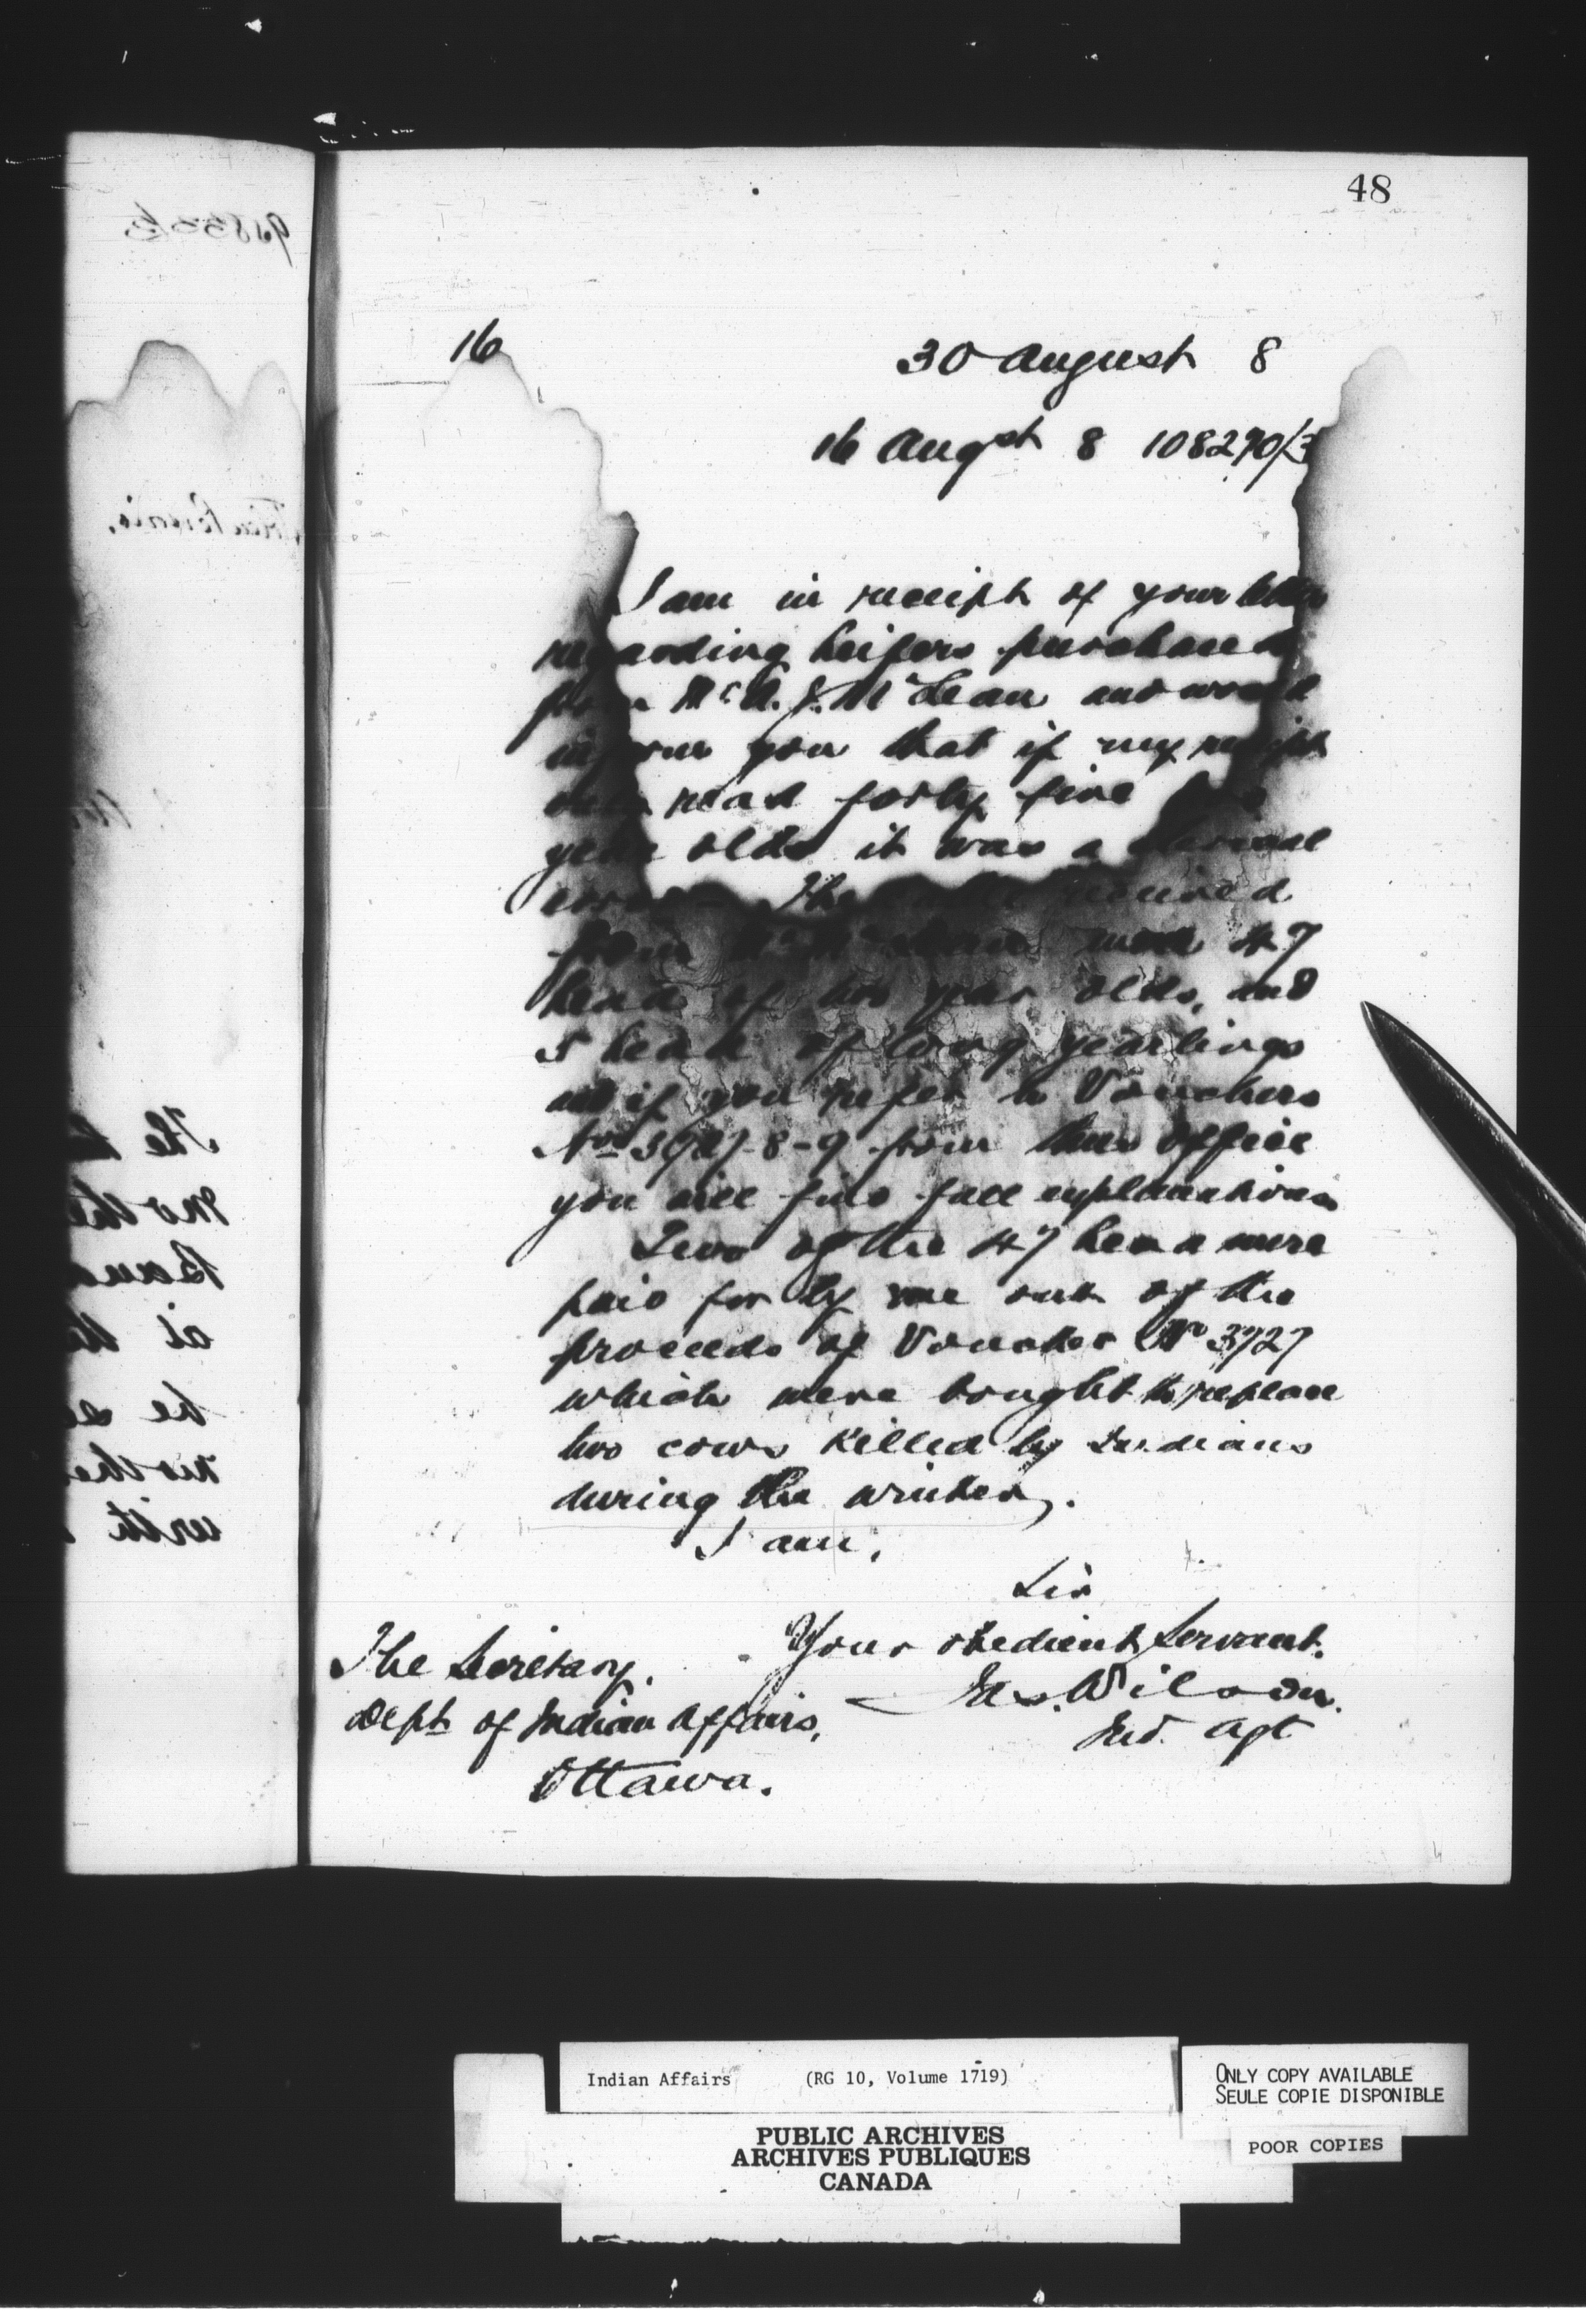 48
16
30 August 8
16 Augst 8 108290/3
I am in receipt of your letter
regarding heifers purchased
from Mr. A. J. McLean and would
inform you that if my receipt
read forty five two
year olds it was a clerical
error - The cattle received
from Mr McLean were 47
head of two year olds, and
head of long yearlings
and if you refer to Vouchers
Nos 3727-8-9 from this office
you will find full explanations
Two of the 47 head were
paid for by me out of the
proceeds of Voucher No 3727
which were bought to replace
two cows killed by Indians
during the winter.
I am,
Sir
Your obedient Servant.
Jas. Wilson.
Ind. Agt
The Secretary.
Dept of Indian Affairs,
Ottawa.
Indian Affairs (RG 10, Volume 1719)
PUBLIC ARCHIVES
ARCHIVES PUBLIQUES
CANADA
ONLY COPY AVAILABLE
SEULE COPIE DISPONIBLE
POOR COPIES